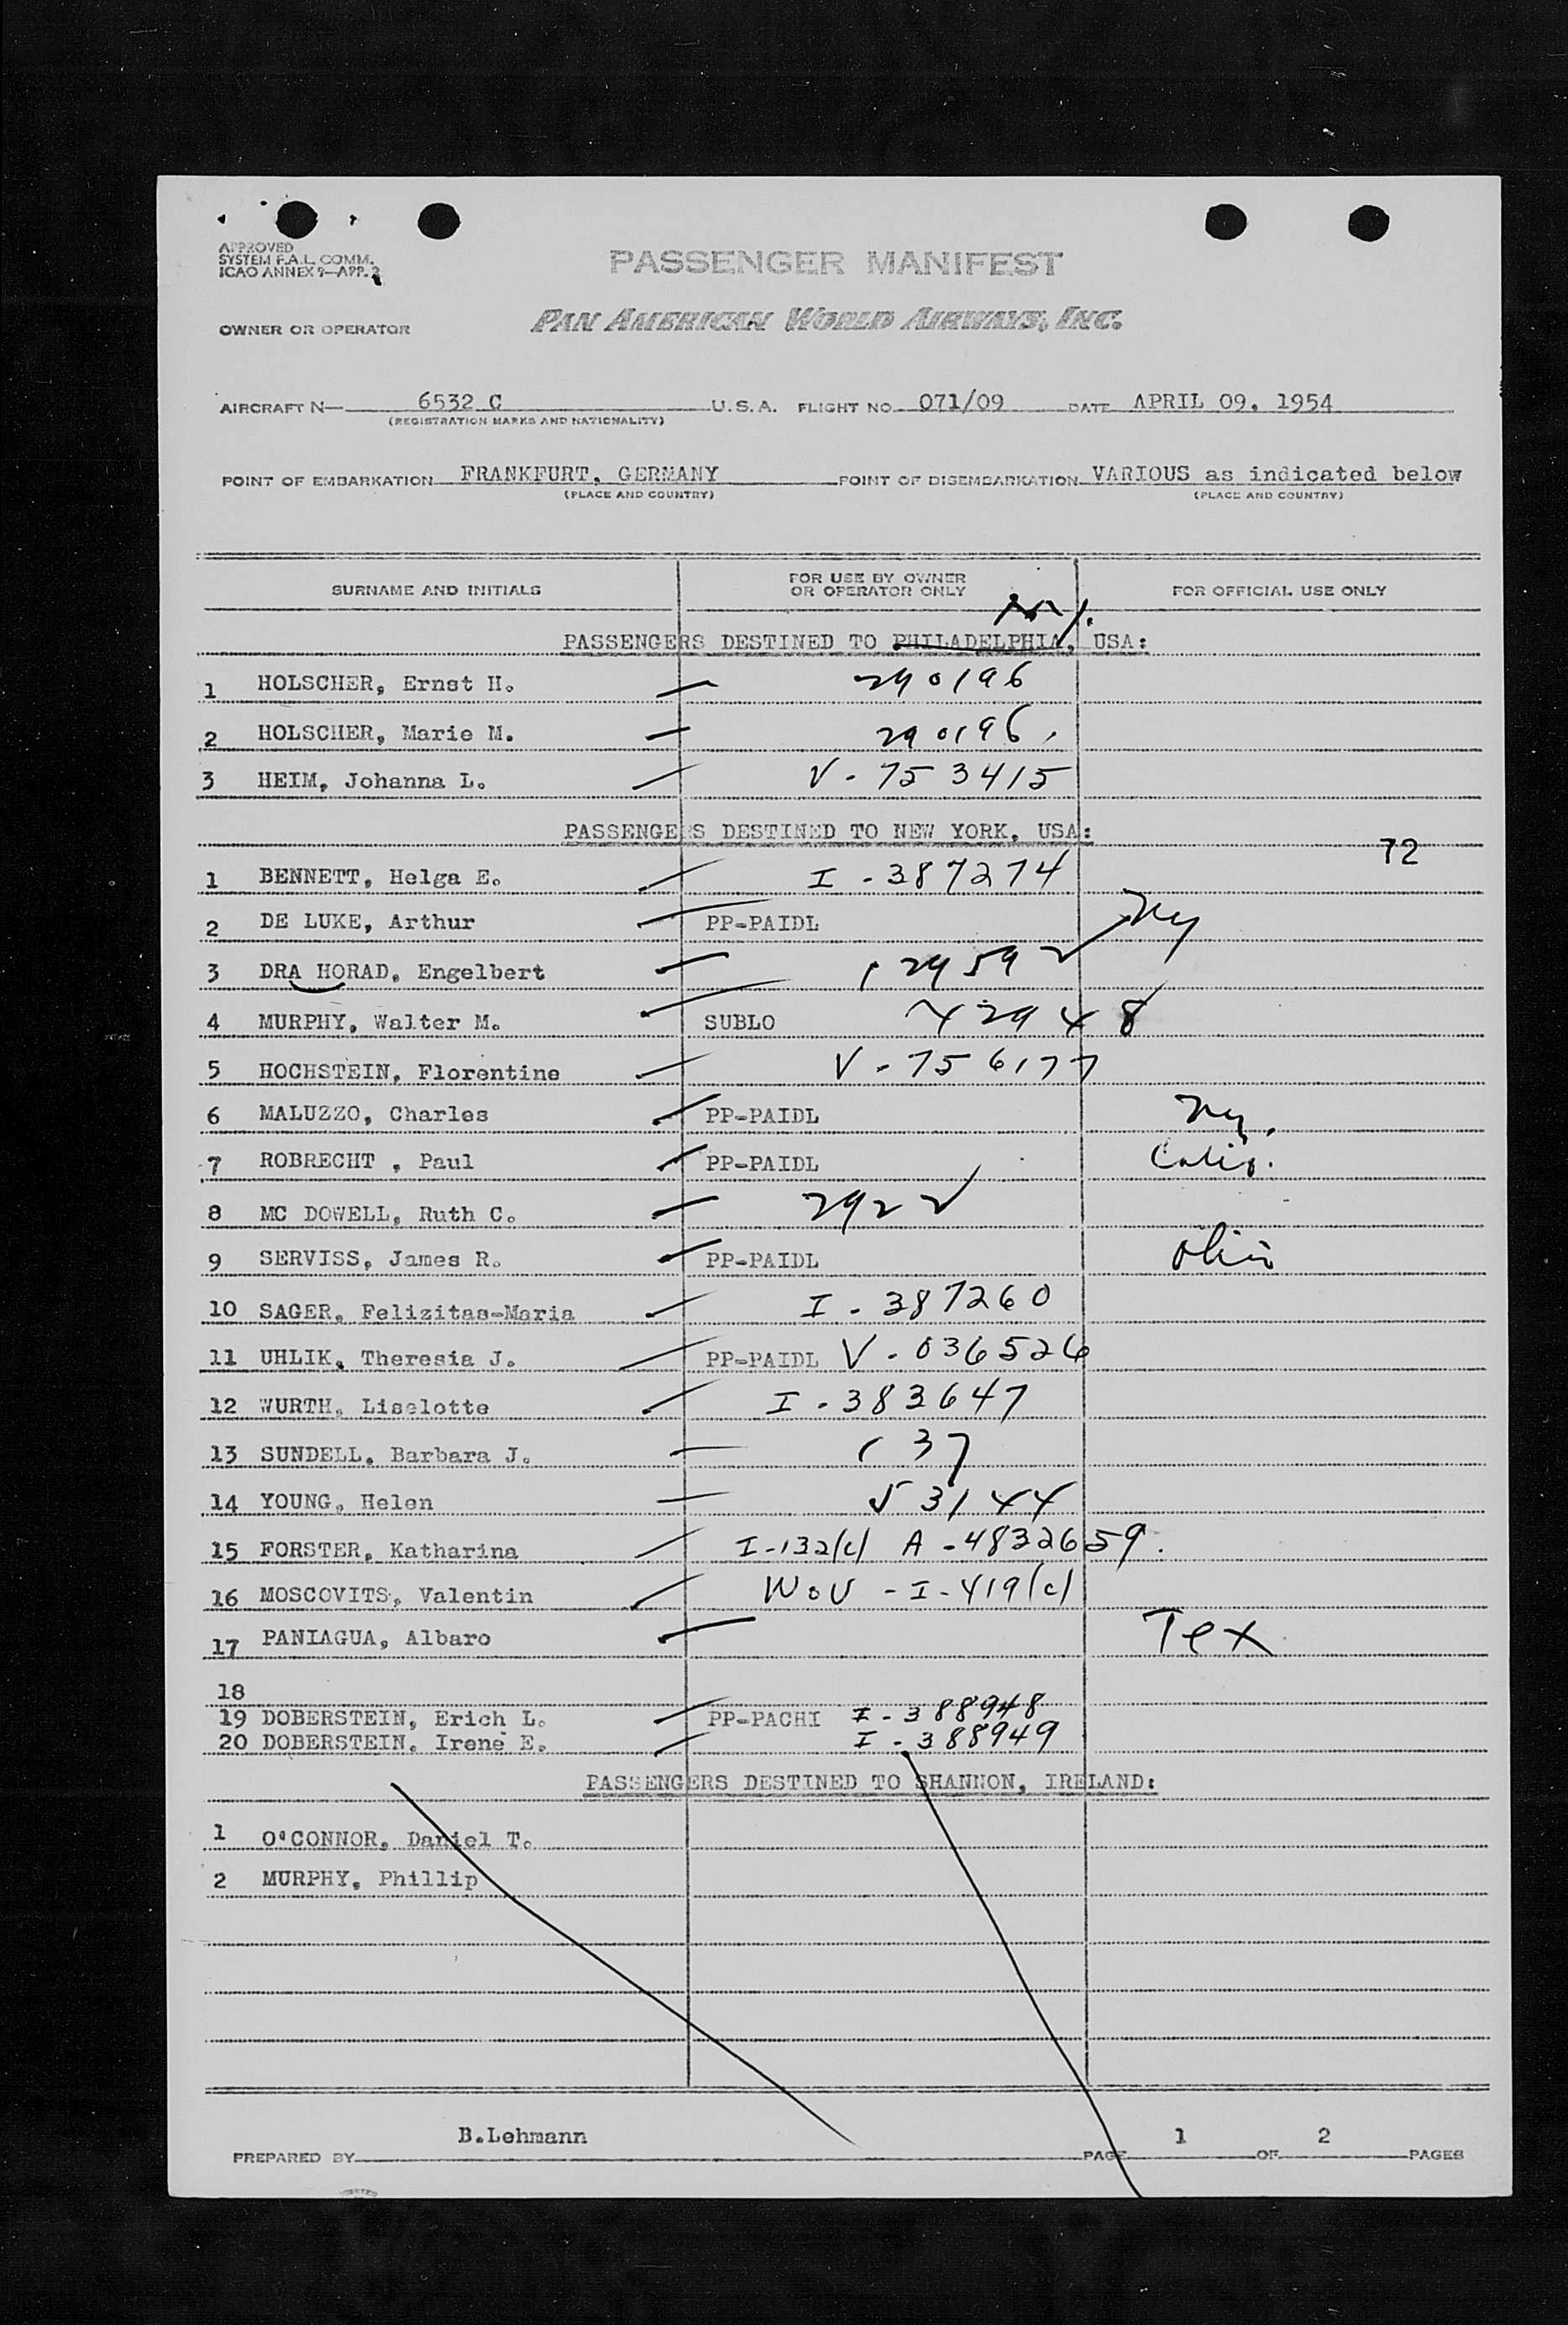 APPROVED
SYSTEM F.A.L. COMM.
ICAO ANNEX 9—APP. 2
PASSENGER MANIFEST
OWNER OR OPERATOR PAN AMERICAN WORLD AIRWAYS, INC.
AIRCRAFT N— 6532 C U.S.A. FLIGHT NO. 071/09 DATE APRIL 09, 1954
(REGISTRATION MARKS AND NATIONALITY)
POINT OF EMBARKATION FRANKFURT, GERMANY POINT OF DISEMBARKATION VARIOUS as indicated below
(PLACE AND COUNTRY) (PLACE AND COUNTRY)
SURNAME AND INITIALS FOR USE BY OWNER OR OPERATOR ONLY FOR OFFICIAL USE ONLY
NY.
PASSENGERS DESTINED TO PHILADELPHIA, USA:
1 HOLSCHER, Ernst H. 290196
2 HOLSCHER, Marie M. 290196.
3 HEIM, Johanna L. V-753415
PASSENGERS DESTINED TO NEW YORK, USA:
72
1 BENNETT, Helga E. I-387274
2 DE LUKE, Arthur PP-PAIDL Ny
3 DRA HORAD, Engelbert 12959 ✓
4 MURPHY, Walter M. SUBLO 42948
5 HOCHSTEIN, Florentine V-756177
6 MALUZZO, Charles PP-PAIDL Ny.
7 ROBRECHT , Paul PP-PAIDL Calif.
8 MC DOWELL, Ruth C. 2922
9 SERVISS, James R. PP-PAIDL Ohio
10 SAGER, Felizitas-Maria I-387260
11 UHLIK, Theresia J. PP-PAIDL V-036526
12 WURTH, Liselotte I-383647
13 SUNDELL, Barbara J. 137
14 YOUNG, Helen 53144
15 FORSTER, Katharina I-132(c) A-4832659.
16 MOSCOVITS, Valentin WOV-I-419(c)
17 PANIAGUA, Albaro Tex
18
19 DOBERSTEIN, Erich L. PP-PACHI I-388948
20 DOBERSTEIN, Irene E. I-388949
PASSENGERS DESTINED TO SHANNON, IRELAND:
1 O'CONNOR, Daniel T.
2 MURPHY, Phillip
PREPARED BY B.Lehmann PAGE 1 OF 2 PAGES